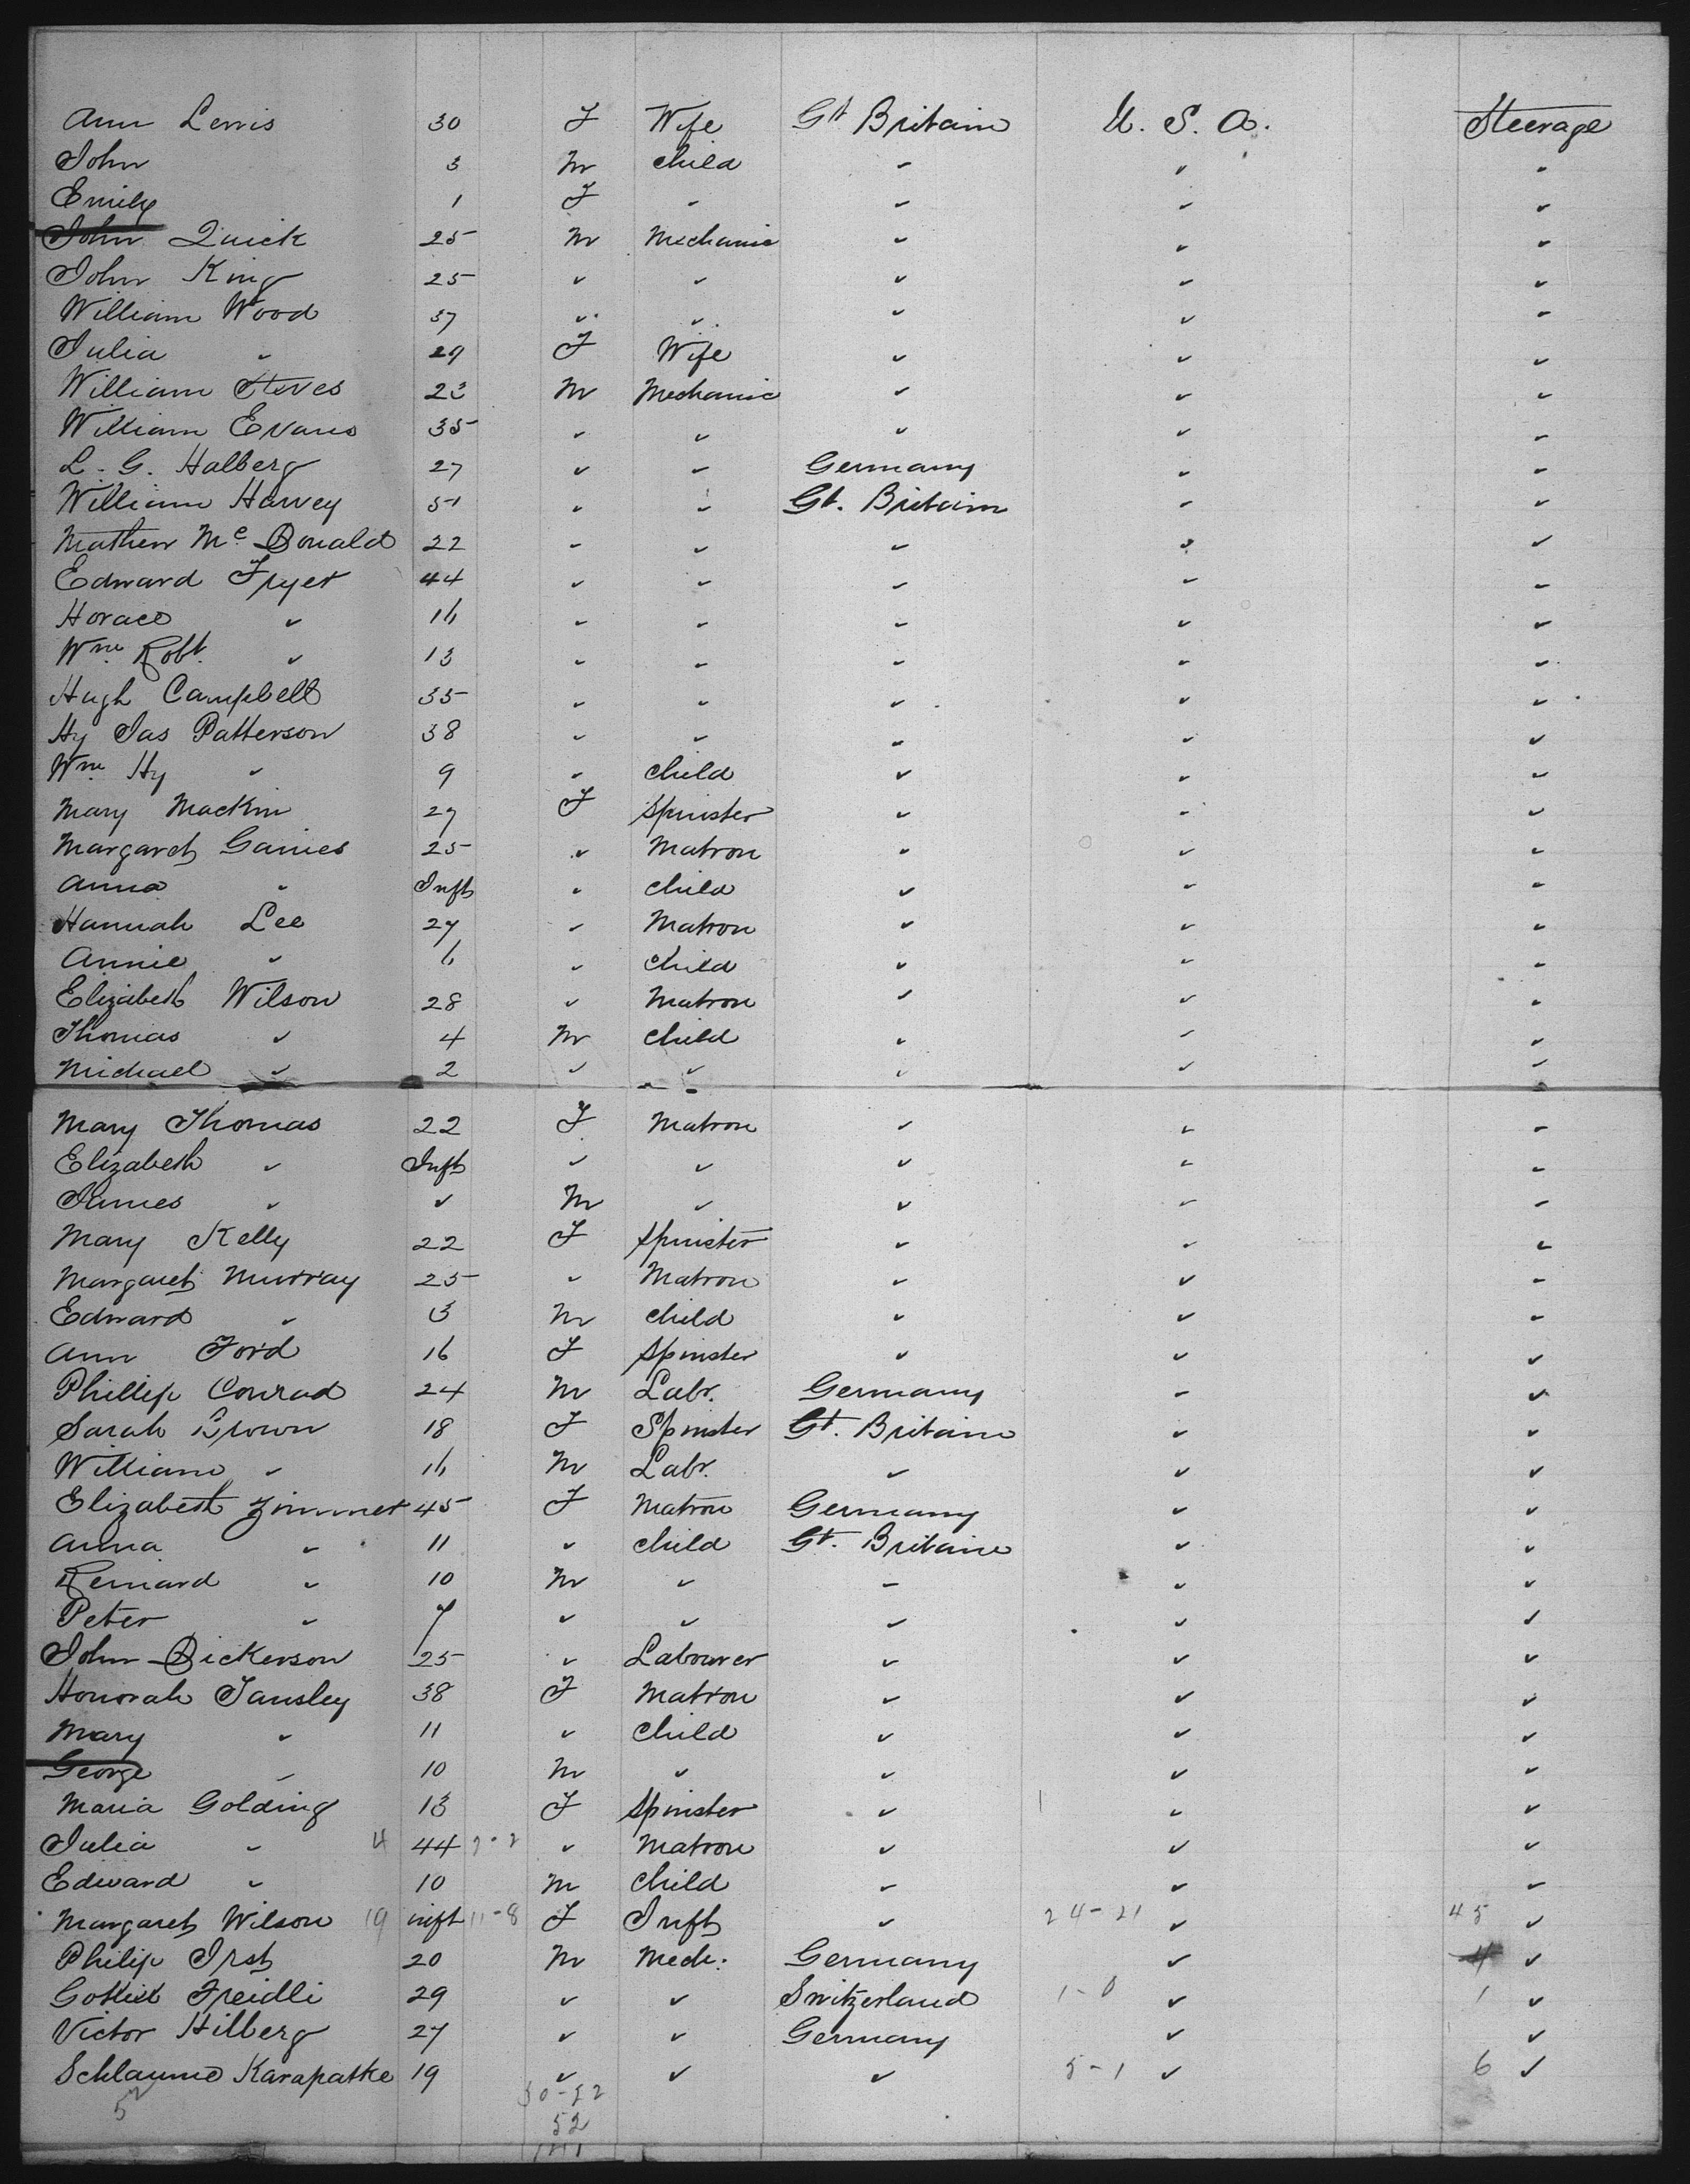 Ann Lewis 30 F Wife Gt Britain U. S. A. Steerage
John 3 M child " " "
Emily 1 F " " " "
John Quick 25 M Mechanic " " "
John King 25 " " " " "
William Wood 37 " " " " "
Julia " 29 F Wife " " "
William Steves 23 M Mechanic " " "
William Evans 35 " " " " "
L. G. Halberg 27 " " Germany " "
William Harvey 51 " " Gt. Britain " "
Mathew Mc Donald 22 " " " " "
Edward Fryer 44 " " " " "
Horace " 16 " " " " "
Wm Robt. " 13 " " " " "
Hugh Campbell 35 " " " " "
Hy Jas Patterson 38 " " " " "
Wm Hy " 9 " child " " "
Mary Mackin 27 F Spinster " " "
Margaret Gaines 25 " Matron " " "
Anna " Inft " child " " "
Hannah Lee 27 " Matron " " "
Annie " 6 " child " " "
Elizabeth Wilson 28 " Matron " " "
Thomas " 4 M child " " "
Michael " 2 " " " " "
Mary Thomas 22 F Matron " " "
Elizabeth " Inft " " " " "
James " " M " " " "
Mary Kelly 22 F Spinster " " "
Margaret Murray 25 " Matron " " "
Edward " 3 M child " " "
Ann Ford 16 F Spinster " " "
Phillip Conrad 24 M Labr. Germany " "
Sarah Brown 18 F Spinster Gt. Britain " "
William " 16 M Labr. " " "
Elizabeth Zimmer 45 F Matron Germany " "
Anna " 11 " child Gt. Britain " "
Bernard " 10 M " " " "
Peter " 7 " " " " "
John Dickerson 25 " Labourer " " "
Honorah Tansley 38 F Matron " " "
Mary " 11 " child " " "
George " 10 M " " " "
Maria Golding 13 F Spinster " " "
Julia " 4 44 2-2 " Matron " " "
Edward " 10 M child " " "
Margaret Wilson 19 inft 11-8 F Inft " 24-21 " 45 "
Philip Irst 20 M Mech. Germany " "
Gottlieb Freidli 29 " " Switzerland 1-0 " 1 "
Victor Hilberg 27 " " Germany " "
Schlaume Karapatke 19 " " " 5-1 " 6 "
52 30-22
52